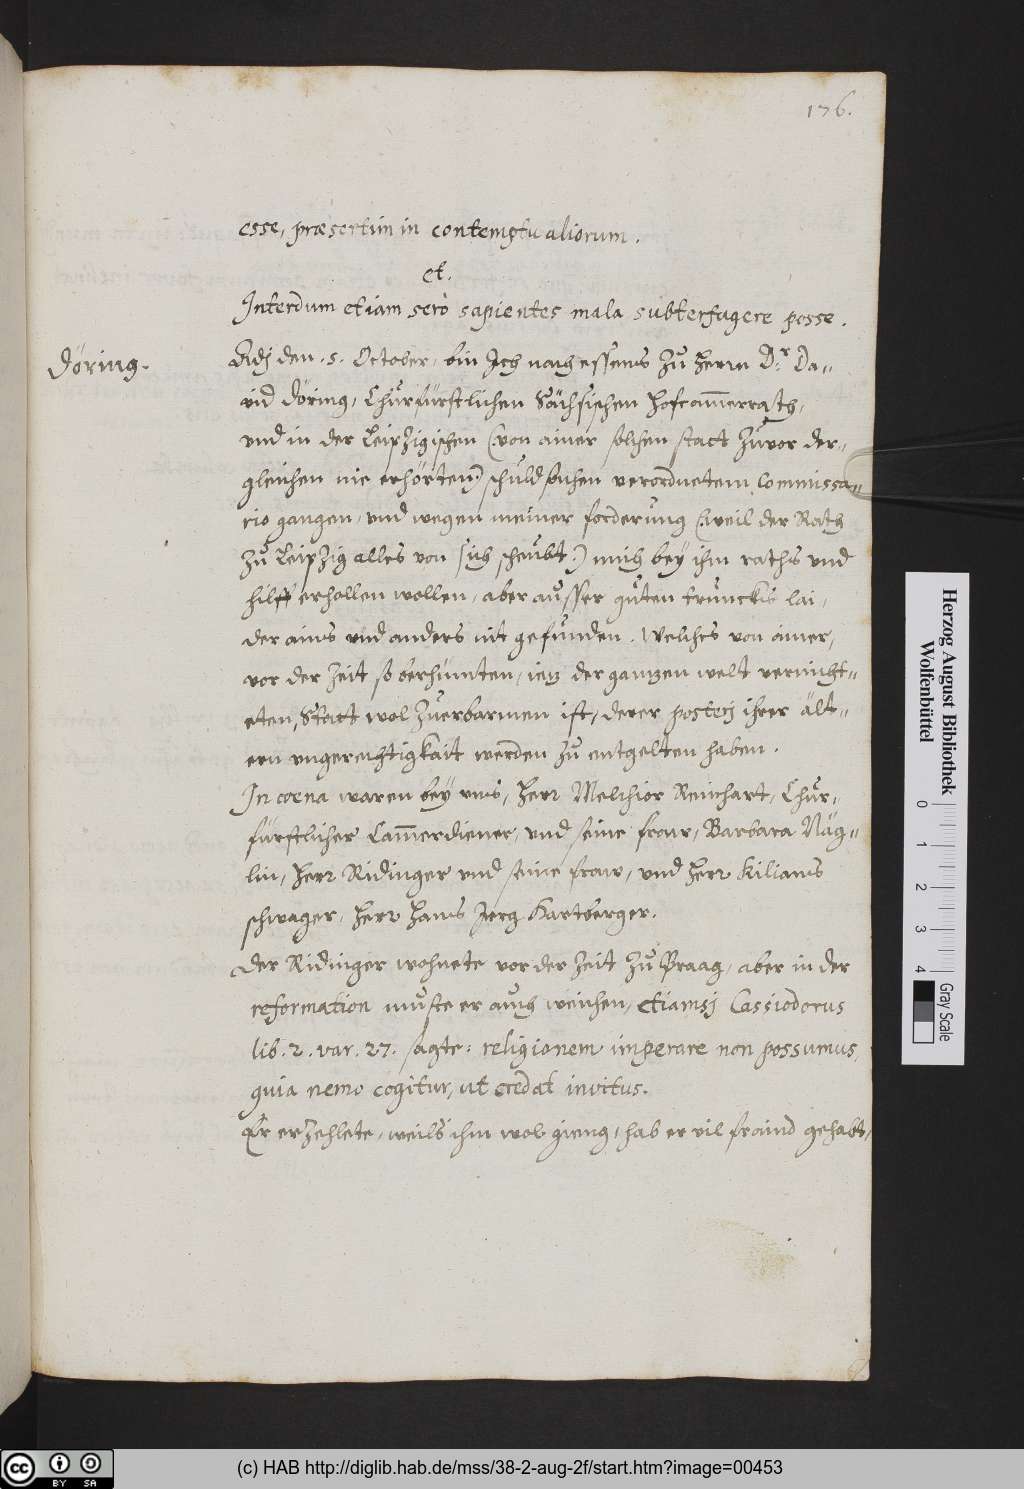 176.
esse, præsertim in contemptu aliorum.
et.
Interdum etiam serò sapientes mala subterfugere posse.
Döring.
Adj den .5. October, bin Ich nach essens zu Herrn Dr. Da-
vid Döring, Churfürstlichen Sächsischen Hofcammerrath,
vnd in der Leipzigischen (: von ainer solchen statt zuvor der-
gleichen nie erhörten :) schuldsachen verordnetem Commissa-
rio gangen, vnd wegen meiner forderung (: weil der Rath
zu Leipzig alles von sich scheubt :) mich bey ihm raths vnd
hilff erhollen wollen, aber ausser guten truncks lai,
der ains vnd anders nit gefunden. Welches von ainer,
vor der Zeit so berhümten, ietz der gantzen welt vernicht-
eten, Statt wol zuerbarmen ist, derer posterj ihrer ält-
ern vngerechtigkait werden zu entgelten haben.
In coena waren bey vns, Herr Melchior Reinhart, Chur,
fürstlicher Cammerdiener, vnd seine fraw, Barbara Näg-
lin, Herr Ridinger vnd seine fraw, vnd Herr Kilians
schwager, Herr Hans Jerg Hartberger.
Der Ridinger wohnete vor der Zeit zu Praag, aber in der
reformation muste er auch weichen, etiamsj Cassiodorus
lib. 2. var. 27. sagte: religionem imperare non possumus,
quia nemo cogitur, ut credat invitus.
Er erzehlete, weils ihm wol gieng, hab er vil fraind gehabt,
Herzog August Bibliothek
Wolfenbüttel
0 1 2 3 4
Gray Scale
cc BY SA
(c) HAB http://diglib.hab.de/mss/38-2-aug-2f/start.htm?image=00453